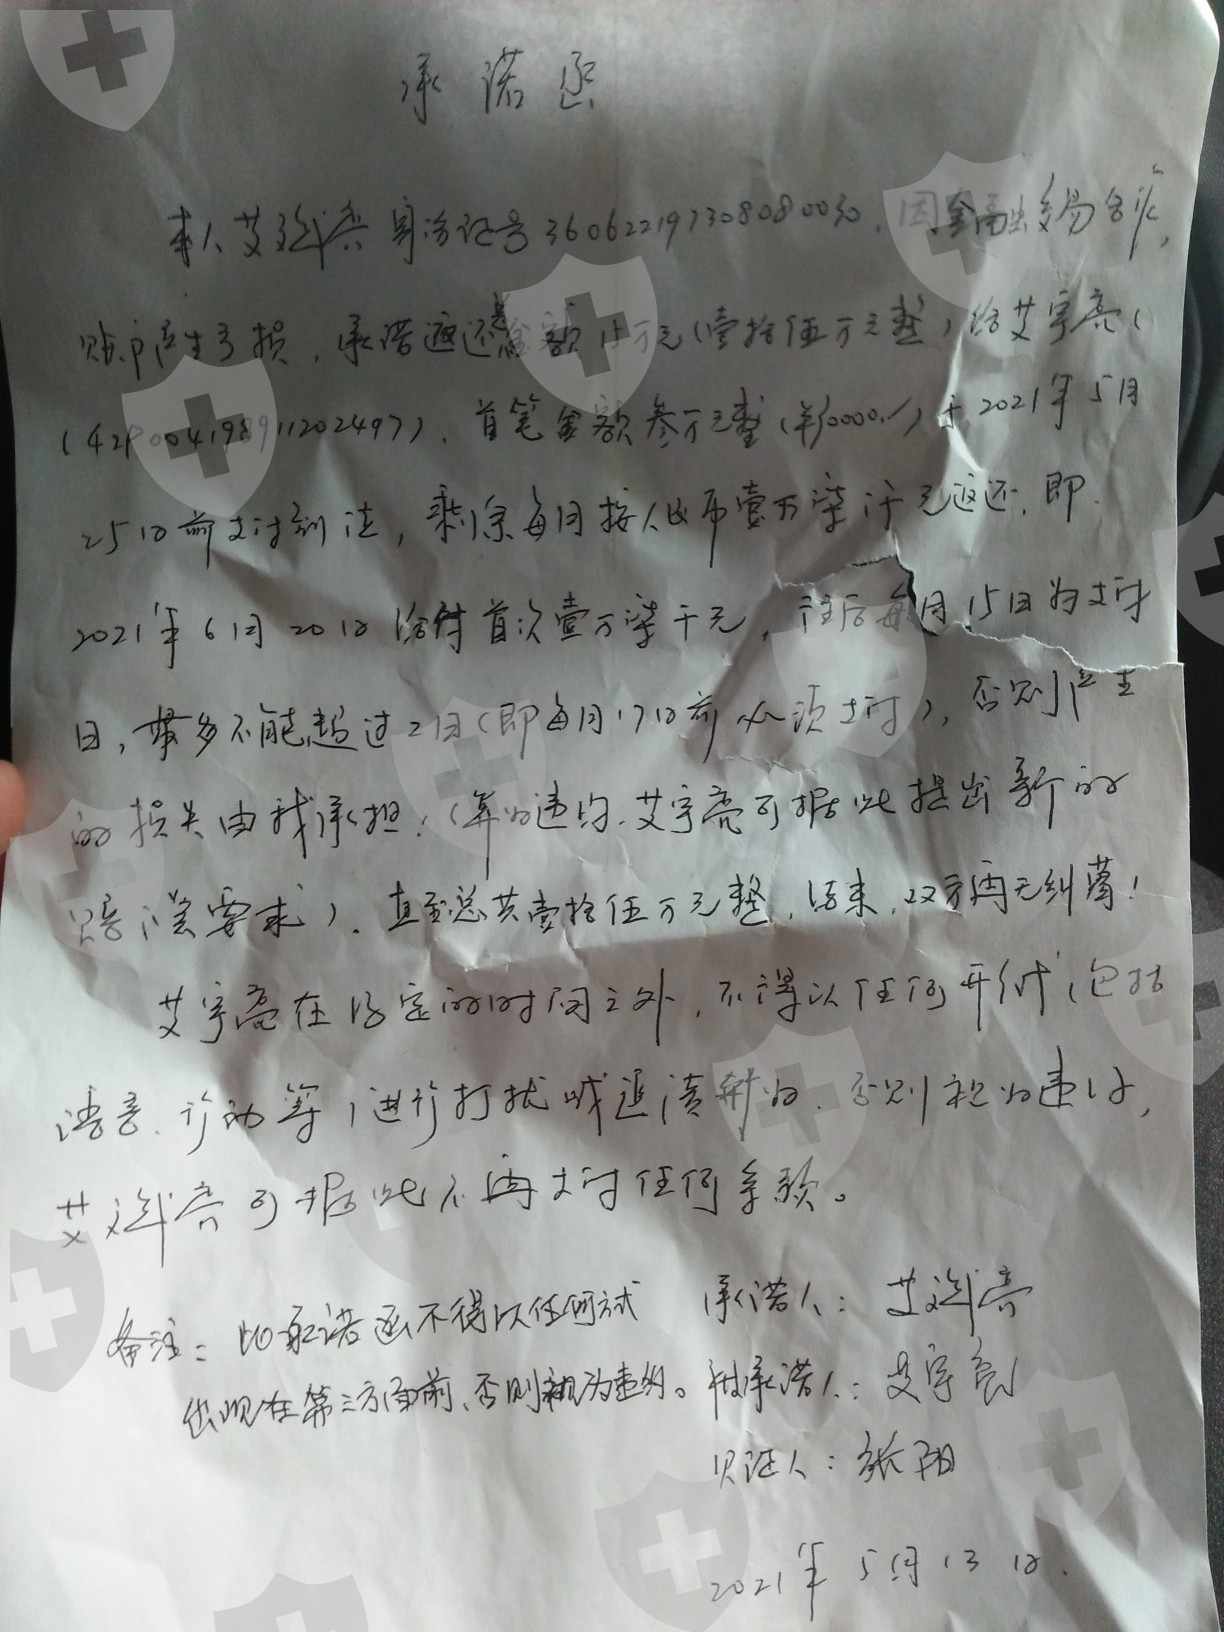 承诺函
本人艾 身份证号360622197308080030，因金融交易合约，
账户产生亏损，承诺返还总金额15万元（壹拾伍万元整）给艾宇亮（
（429004198911202497），首笔金额叁万元整（¥30000./）于2021年5月
25日前支付到位，剩余每月按人民币壹万柒仟元返还，即
2021年6月20日给付首次壹万柒千元，往后每月15日为支付
日，最多不能超过2日（即每月17日前必须支付），否则产生
的损失由我承担，（算为违约，艾宇亮可据此提出新的
赔偿要求）。直至总共壹拾伍万元整，结束，双方再无纠葛！
艾宇亮在约定的时间之外，不得以任何形式（包括
语言、行动等）进行打扰或追债行为，否则视为违约，
艾 亮可据此不再支付任何条款。
备注：此承诺函不得以任何方式
出现在第三方面前，否则视为违约。
承诺人：艾 亮
被承诺人：艾宇亮
见证人：张阳
2021年5月13日.